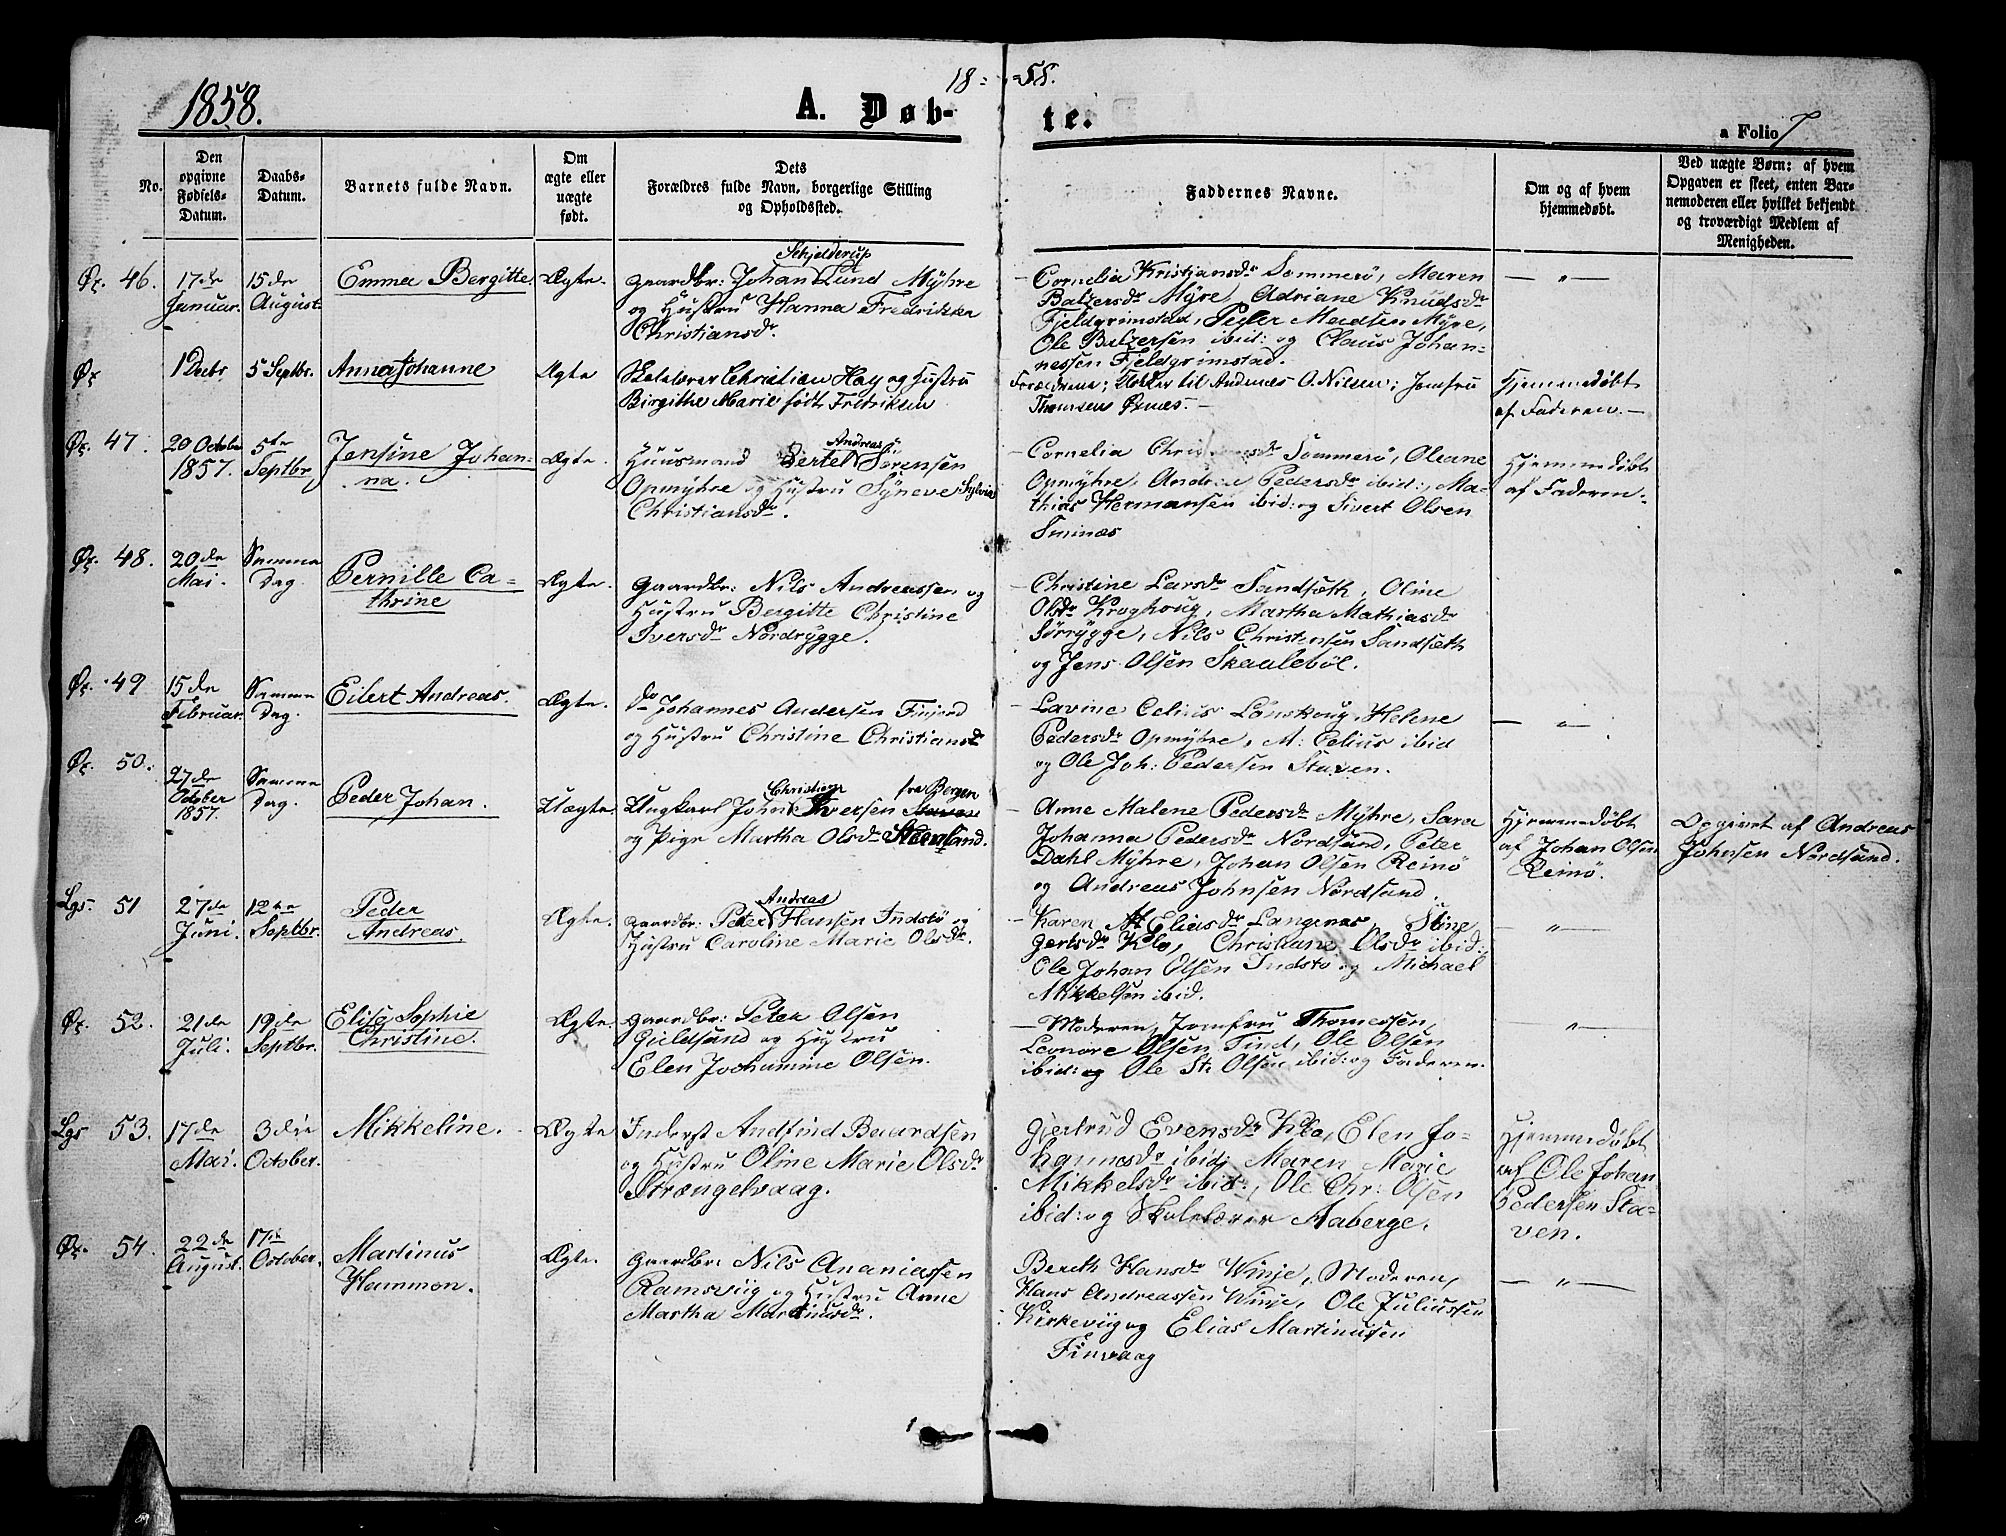 1858.
18 - 58.
A. Døb-
te.
a Folio 7
No.
Den opgivne Fødsels-Datum.
Daabs-Datum.
Barnets fulde Navn.
Om ægte eller uægte født.
Dets Forældres fulde Navn, borgerlige Stilling og Opholdssted.
Faddernes Navne.
Om og af hvem hjemmedøbt.
Ved uægte Børn: af hvem Opgaven er skeet, enten Barnemoderen eller hvilket bekjendt og troværdigt Medlem af Menigheden.
Øx. 46.
17de
Januar.
15de
August.
Emma Bergitte.
Ægte.
Schjelderup
Gaardbr: Johan Lund Myhre
og Hustru Hanna Fredrikke
Christiansdr.
- Cornelia Kristjansdr Sommerö, Maren
Balzersdr Myre, Adriane Knudsdr
Fjeldgrimstad, Peder Madsen Myre,
Ole Balzersen ibid: og Claus Johan-
nessen Fjeldgrimstad.
— „ —
Øx
1 Decbr
5 Septbr.
Anna Johanne
Ægte
Christian Hay og Hustru
Birgithe Marie født Fredriksen
Forældrene; til Andenæs O. Nilsen; Jomfru
Thomesen Øxnæs. -
Hjemmedøbt
af Faderen. -
Øx. 47.
20 October
1857.
5te
Septbr.
Jensine Johan-
na.
Ægte.
Andreas
Huusmand Bertel Sörensen
Opmyhre og Hustru Syneve Sylvia
Christiansdr.
- Cornelia Sommerö, Oleane
Opmyhre, Andrea Pedersdr ibid:, Ma-
thias Hermansen ibid: og Sivert Olsen
Sminæs
Hjemmedøbt
af Faderen.
Øx. 48.
20de
Mai.
Samme
Dag.
Pernille Ca-
thrine
Ægte.
Gaardbr: Nils Andreassen og
Hustru Bergitte Christine
Iversdr Nordrygge.
- Christine Larsdr Sandsæth, Oline
Olsdr Kroghoug, Martha Mathiasdr
Sörrygge, Nils Christensen Sandsæth
og Jens Olsen Skaaleböl.
Øx. 49
15de
Februar.
Samme
Dag.
Eilert Andreas.
Ægte.
do Johannes Andersen Finjord
og Hustru Christine Christiansdr
- Lavine Celius Lonskoug, Helene
Pedersdr Opmyhre, M: Celius ibid
og Ole Joh: Pedersen Staven.
— „ —
Øx. 50.
27de
October
1857.
Samme
Dag.
Peder Johan.
Uægte.
Christian fra Bergen
Ungkarl John Iversen
og Pige Martha Olsdr
- Anne Malene Pedersdr Myhre, Sara
Johanna Pedersdr Nordsund, Peter
Dahl Myhre, Johan Olsen Reinö
og Andreas Johnsen Nordsund.
Hjemmedøbt
af Johan Olsen
Reinö.
Opgivet af Andreas
Johnsen Nordsund.
Lgs. 51
27de
Juni.
12te
Septbr.
Peder
Andreas.
Ægte.
Andreas
Gaardbr: Peter Hansen Indstö og
Hustru Caroline Marie Olsdr.
- Karen Eliasdr Langenes, Stine
Gertsdr Klo, Christiane Olsdr ibid:
Ole Johan Olsen Indstö og Michael
Mikkelsen ibid.
— „ —
Øx. 52.
21de
Juli.
19de
Septbr.
Elise Sophie
Christine.
Ægte.
Gaardbr: Peter Olsen
Gieldsund og Hustru
Elen Jochamine Olsen.
- Moderen, Jomfru Thomessen,
Leonore Olsen Tind, Ole Olsen
ibid: og Ole St: Olsen ibid: og Faderen.
„ —
Lgs 53.
17de
Mai.
3die
October.
Mikkeline.
Ægte
Inderst Andfind Baardsen
og Hustru Oline Marie Olsdr
Strængelvaag.
Gjertrud Evensdr Klo, Elen Jo-
hannesdr ibid; Maren Marie
Mikkelsdr ibid:, Ole Chr: Olsen
ibid: og Skolelærer Aaberge.
Hjemmedøbt
af Ole Johan
Pedersen Sta-
ven.
Øx. 54.
22de
August.
17de
October.
Martinus
Hammon.
Ægte.
Gaardbr: Nils Ananiassen
Ramsviig og Hustru Anne
Martha Martinusdr.
Bereth Hansdr Winje, Moderen,
Hans Andreassen Winje, Ole Juliussen
Kirkeviig og Elias Martinussen
Finvaag
— „ —